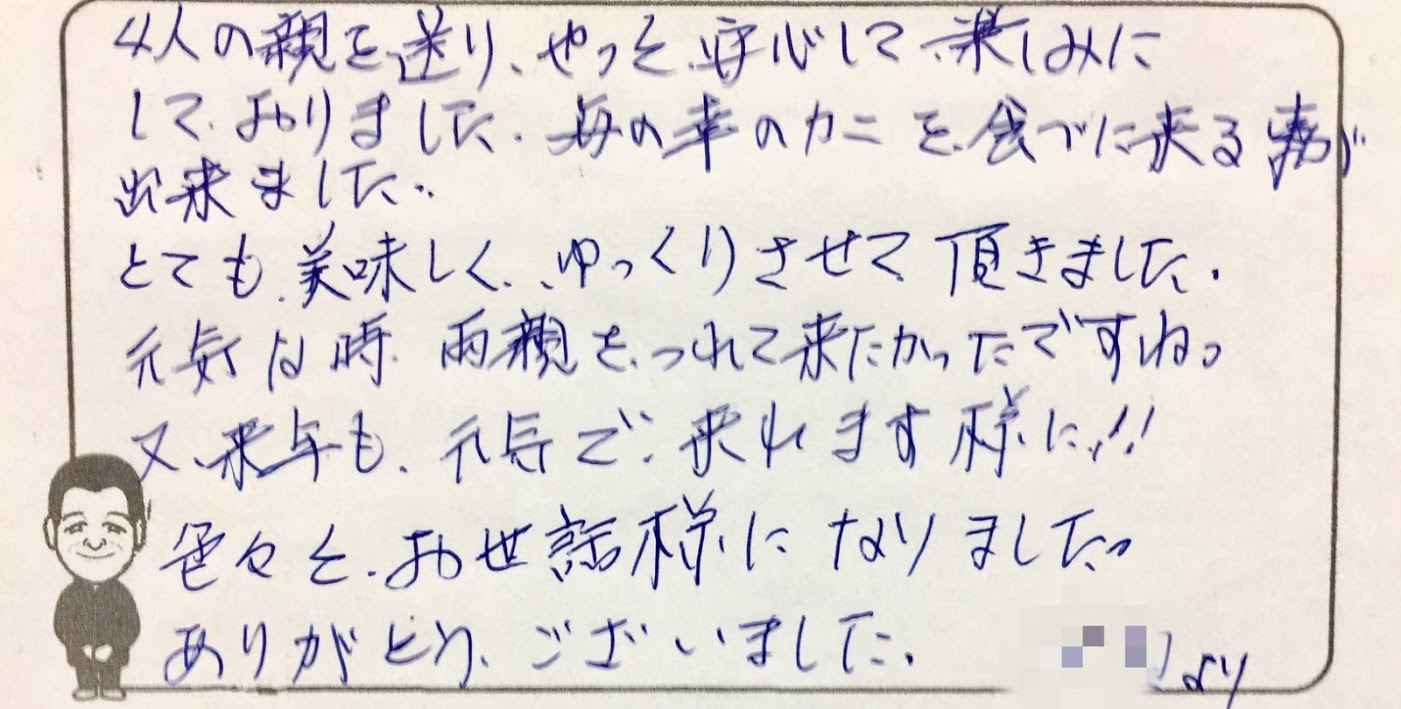 4人の親を送り、やっと安心して楽しみに
しておりました。海の幸のカニを食べに来る事が
出来ました。
とても美味しく、ゆっくりさせて頂きました。
元気な時、両親をつれて来たかったですね。
又、来年も、元気で来れます様に!!
色々と、お世話様になりました。
ありがとう、ございました。
より